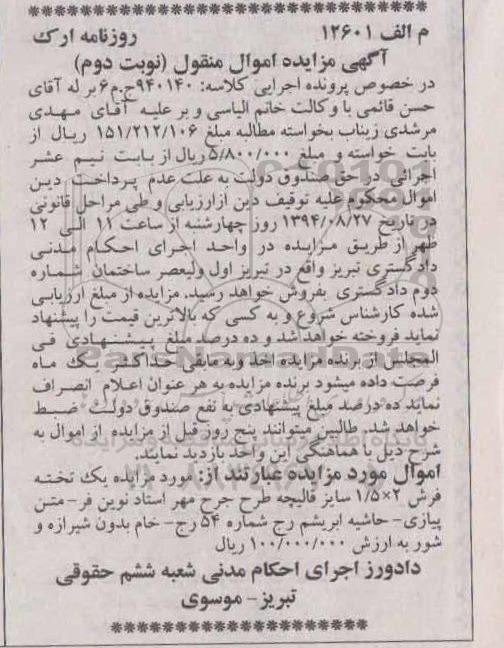 م الف ۱۲۶۰۱ روزنامه ارک
آگهی مزایده اموال منقول (نوبت دوم)
در خصوص پرونده اجرایی کلاسه: ۹۴۰۱۴۰ج.م۶بر له آقای
حسن قائمی با وکالت خانم الیاسی و بر علیه آقای مهدی
مرشدی زیناب بخواسته مطالبه مبلغ ۱۵۱/۲۱۲/۱۰۶ ریال از
بابت خواسته و مبلغ ۵/۸۰۰/۰۰۰ریال از بابت نیم عشر
اجرائی در حق صندوق دولت به علت عدم پرداخت دین
اموال محکوم علیه توقیف دین ازارزیابی و طی مراحل قانونی
در تاریخ ۱۳۹۴/۰۸/۲۷ روز چهارشنبه از ساعت ۱۱ الی ۱۲
ظهر از طریق مزایده در واحد اجرای احکام مدنی
دادگستری تبریز واقع در تبریز اول ولیعصر ساختمان شماره
دوم دادگستری بفروش خواهد رسید. مزایده از مبلغ ارزیابی
شده کارشناس شروع و به کسی که بالاترین قیمت را پیشنهاد
نماید فروخته خواهد شد و ده درصد مبلغ پیشنهادی فی
المجلس از برنده مزایده اخذ وبه مابقی حداکثر یک ماه
فرصت داده میشود برنده مزایده به هر عنوان اعلام انصراف
نماید ده درصد مبلغ پیشنهادی به نفع صندوق دولت ضبط
خواهد شد. طالبین میتوانند پنج روز قبل از مزایده از اموال به
شرح ذیل با هماهنگی این واحد بازدید نمایند.
اموال مورد مزایده عبارتند از: مورد مزایده یک تخته
فرش ۲×۱/۵ سایز قالیچه طرح جرح مهر استاد نوین فر- متن
پیازی- حاشیه ابریشم رج شماره ۵۴ رج- خام بدون شیرازه و
شور به ارزش ۱۰۰/۰۰۰/۰۰۰ ریال
دادورز اجرای احکام مدنی شعبه ششم حقوقی
تبریز- موسوی
ParsNamadData